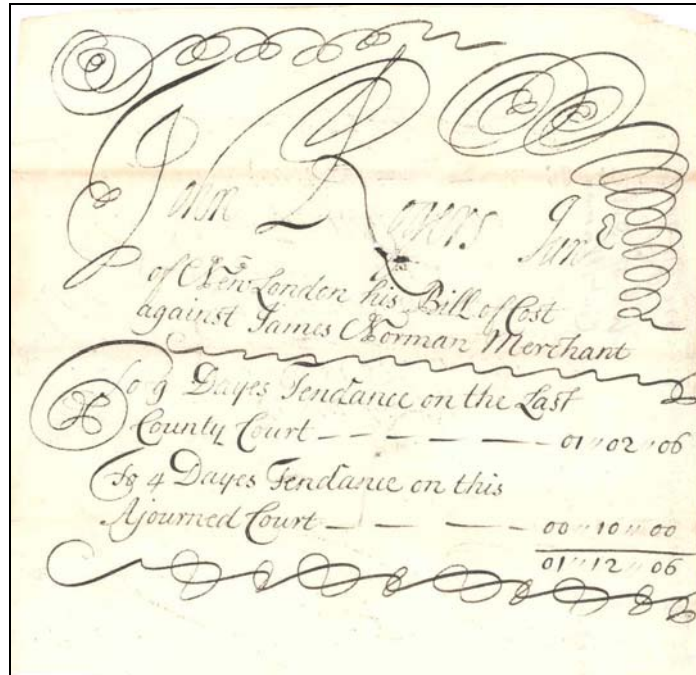 John Rogers Junr
of New London his Bill of Cost
against James Norman Merchant
To 9 Dayes Tendance on the Last
County Court — — — — — 01〃02〃06
To 4 Dayes Tendance on this
Ajourned Court — — — — 00〃10〃00
01〃12〃06